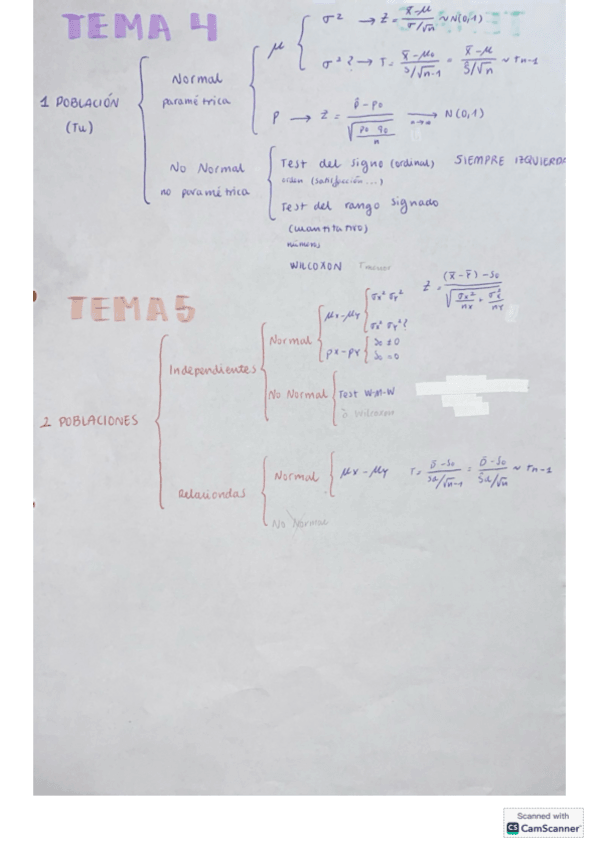 TEMA 4
1 POBLACIÓN
(Tu)
Normal
paramétrica
μ
σ² → Z = (x̄-μ)/(σ/√n) ~ N(0,1)
σ²? → T = (x̄-μ₀)/(S/√n-1) = (x̄-μ)/(Ŝ/√n) ~ Tn-1
p → Z = (p̂-p₀)/√(p₀ q₀/n) → n→∞ N(0,1)
No Normal
no paramétrica
Test del signo (ordinal) SIEMPRE IZQUIERDA
orden (satisfacción...)
Test del rango signado
(cuantitativo)
números
WILCOXON
TEMA 5
2 POBLACIONES
Independientes
Normal
μx-μy
σx² σy² Z =
σx² σy²?
px-py
δ₀ ≠ 0
δ₀ = 0
No Normal
Test W-M-W
ó Wilcoxon
Relaciondas
Normal
μx-μy T = (D̄-δ₀)/(Sd/√n-1) = (D̄-δ₀)/(Ŝd/√n) ~ Tn-1
No Normal
Scanned with
CS CamScanner